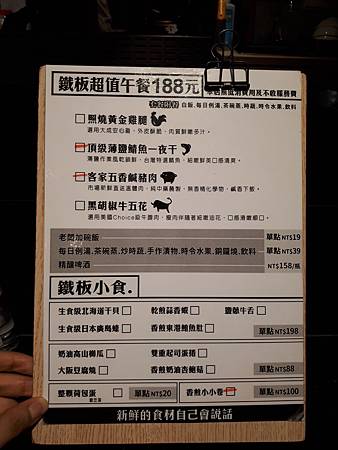 鐵板超值午餐188元
老闆附餐 白飯,每日例湯,茶碗蒸,時蔬,時令水果,飲料
照燒黃金雞腿
選用大成安心雞,外皮酥脆、肉質鮮嫩多汁。
頂級薄鹽鯖魚一夜干
客家五香鹹豬肉
黑胡椒牛五花
老闆加碗飯 單點 NT$19
每日例湯.茶碗蒸.炒時蔬.手作漬物.時令水果.銅鑼燒.飲料 單點 NT$39
精釀啤酒 NT$158/瓶
鐵板小食.
生食級北海道干貝 乾煎蒜香蝦 鹽蔥牛舌
生食級日本廣島蠔 香煎東港鮪魚肚 單點 NT$198
奶油高山娃娃 雙重起司蛋捲
大阪豆腐燒 香煎奶油杏鮑菇 單點 NT$88
整顆荷包蛋 單點 NT$20 香煎小小卷 單點 NT$100
新鮮的食材自己會說話